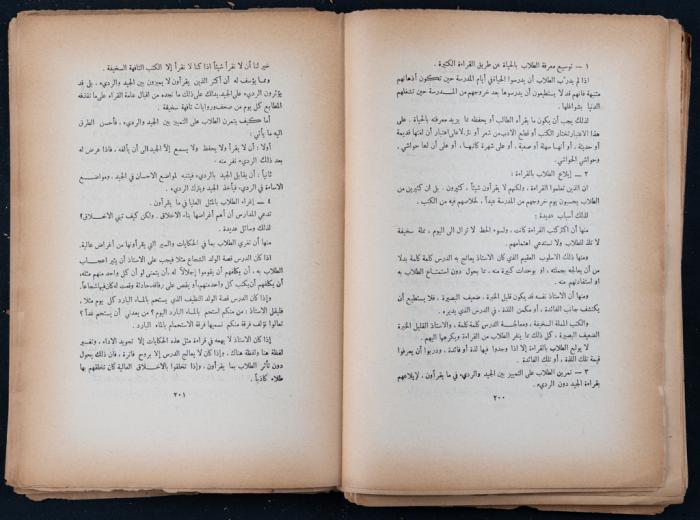 ١ — توسيع معرفة الطلاب بالحياة عن طريق القراءة الكثيرة .
اذا لم يدرب الطلاب أن يدرسوا الحياة في أيام المدرسة حين تكون أذهانهم
متنبهة فانهم قد لا يستطيعون أن يدرسوها بعد خروجهم من المدرسة حين تشغلهم
الدنيا بشواغلها .
لذلك يجب أن يكون ما يقرأه الطالب أو يحفظه مما يزيد معرفته بالحياة . على
هذا الاعتبار تختار الكتب أو قطع الادب من شعر أو نثر لا على اعتبار أن لها قديمة
أو حديثة ، أو أنها سهلة أو صعبة ، أو على شهرة كاتبها ، أو على أن لها حواشي ،
وحواشي الحواشي .
٢ — إيلاع الطلاب بالقراءة :
ان الذين تعلموا القراءة ، ولكنهم لا يقرأون شيئاً ، كثيرون . بل ان كثيرين من
الطلاب يحسبون يوم خروجهم من المدرسة عيداً ، لخلاصهم فيه من الكتب .
لذلك أسباب عديدة :
منها أن أكثر كتب القراءة كانت ، ولسوء الحظ لا تزال الى اليوم ، مملة سخيفة
لا تلذ للطلاب ولا تستدعي اهتمامهم .
ومنها ذلك الاسلوب العقيم الذي كان الاستاذ يعالج به الدرس كلمة كلمة بدلا
من أن يعالجه جملة ، او بوحدات كبيرة منه ، مما يحول دون استمتاع الطلاب به
او استفادتهم منه .
ومنها أن الاستاذ نفسه قد يكون قليل الخبرة ، ضعيف البصيرة ، فلا يستطيع أن
يكتشف جانب الفائدة ، او مكمن اللذة ، في الدرس الذي يديره .
والكتب المملة السخيفة ، ومعالجة الدرس كلمة كلمة ، والاستاذ القليل الخبرة
الضعيف البصيرة ، كل ذلك مما ينفر الطلاب من القراءة ويكرهها اليهم .
لا يولع الطلاب بالقراءة إلا اذا وجدوا فيها لذة أو فائدة ، ودربوا أن يعرفوا
قيمة تلك اللذة ، أو تلك الفائدة .
٣ — تمرين الطلاب على التمييز بين الجيد والرديء في ما يقرأون ، لإيلاعهم
بقراءة الجيد دون الرديء .
٢٠٠
خير لنا أن لا نقرأ شيئاً اذا كنا لا نقرأ إلا الكتب التافهة السخيفة .
ومما يؤسف له أن أكثر الذين يقرأون لا يميزون بين الجيد والرديء ، بل قد
يؤثرون الرديء على الجيد. يدلك على ذلك ما نجده من اقبال عامة القراء على ما تقذفه
المطابع كل يوم من صحف وروايات تافهة سخيفة .
أما كيف يتمرن الطلاب على التمييز بين الجيد والرديء ، فأحسن الطرق
اليه ما يأتي :
أولا : أن لا يقرأ ولا يحفظ ولا يسمع إلا الجيد الى أن يألفه ، فاذا عرض له
بعد ذلك الرديء نفر منه .
ثانياً : أن يقابل الجيد بالرديء فيتنبه لمواضع الاحسان في الجيد ، ومواضع
الاساءة في الرديء فيأخذ الجيد ويترك الرديء .
٤ — إغراء الطلاب بالمثل العليا في ما يقرأون .
تدعي المدارس أن أهم أغراضها بناء الاخلاق . ولكن كيف تبني الاخلاق ؟
لذلك وسائل عديدة .
منها أن تغري الطلاب بما في الحكايات والسير التي يقرأونها من أغراض عالية.
اذا كان الدرس قصة الولد الشجاع مثلا فيجب على الاستاذ أن يثير اعجاب
الطلاب به ، أن يكلفهم أن يقوموا إجلالاً له ، أن يتمنى لو أن كل واحد منهم مثله،
أن يكلفهم أن يكتب كل واحدمنهم ، أو يقص على رفاقه حادثة وقعت له كان فيها شجاعاً.
وإذا كان الدرس قصة الولد النظيف الذي يستحم بالماء البارد كل يوم مثلا ،
فليقل الاستاذ : من منكم استحم بالماء البارد اليوم ؟ من يعدني أن يستحم غداً ؟
تعالوا نؤلف فرقة منكم نسميها فرقة الاستحمام بالماء البارد .
إذا كان الاستاذ لا يهمه في قراءة مثل هذه الحكايات إلا تجويد الاداء ، وتفسير
لفظة هنا ولفظة هناك ، وإذا كان لا يعالج الدرس إلا بروح فاترة ، فان ذلك يحول
دون تأثر الطلاب بما يقرأون ، وإذا تخلقوا بالأخلاق العالية كان تخلقهم بها
طلاء كاذباً .
٢٠١